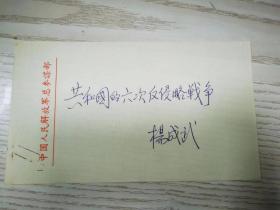 中国人民解放军总参谋部
共和國的六次反侵略戦争
楊成武